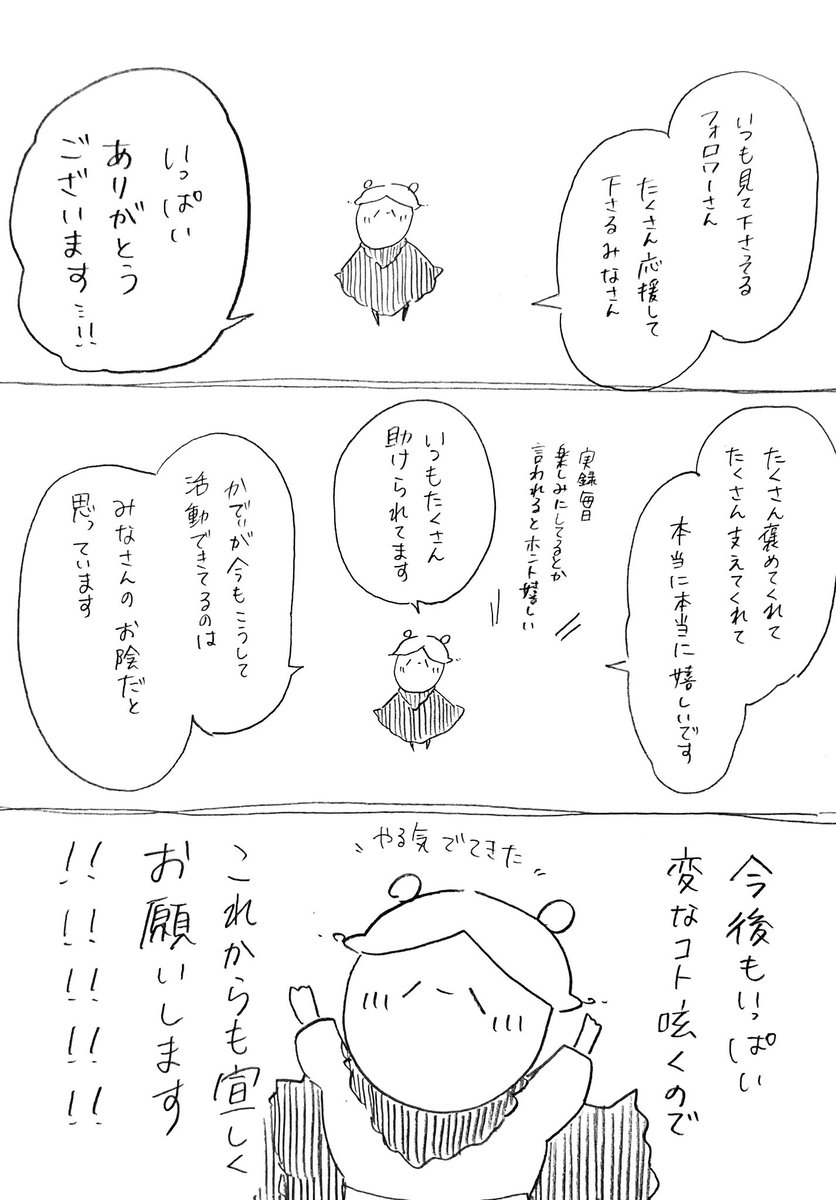 いつも見て下さってる
フォロワーさん
たくさん応援して
下さるみなさん
いっぱい
ありがとう
ございます…!!
たくさん褒めてくれて
たくさん支えてくれて
本当に本当に嬉しいです
実録毎日
楽しみにしてるとか
言われるとホント嬉しい
いつもたくさん
助けられてます
かでぃが今もこうして
活動できてるのは
みなさんのお陰だと
思っています
今後もいっぱい
変なコト呟くので
やる気でてきた
これからも宜しく
お願いします
!!!!!!!!!!